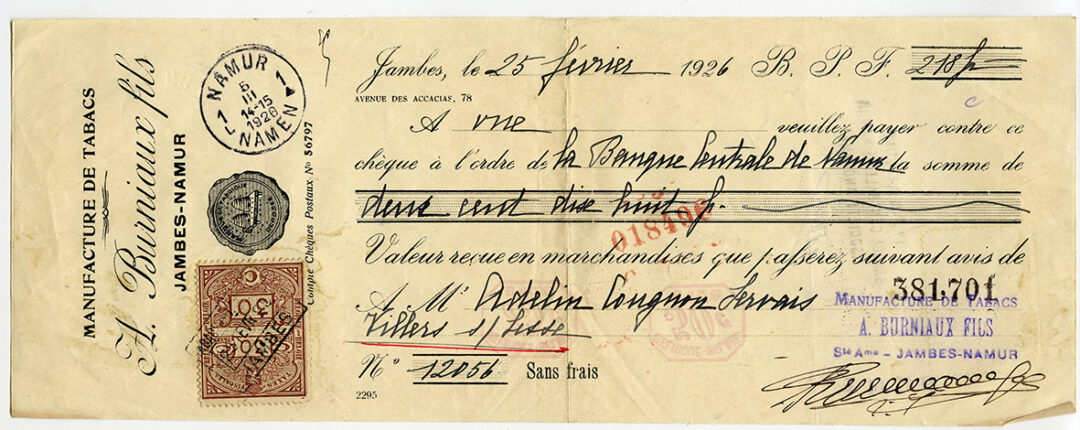 MANUFACTURE DE TABACS
A. Burniaux fils
JAMBES-NAMUR
NAMUR
1 1
5
III
14-15
1926
NAMEN
Compte Chèques Postaux Nº 56797
Jambes, le 25 février 1926 B. P. F. 218 f
AVENUE DES ACCACIAS, 78
A vue veuillez payer contre ce
chèque à l'ordre de la Banque Centrale de Namur la somme de
deux cent dix huit f.
018496
Valeur reçue en marchandises que passerez suivant avis de
381.701
A Mr Adelin Cougnon Servais
MANUFACTURE DE TABACS
Villers s/ Lesse
A. BURNIAUX FILS
Sté Ame - JAMBES-NAMUR
Nº 12056 Sans frais
2295
JAMBES